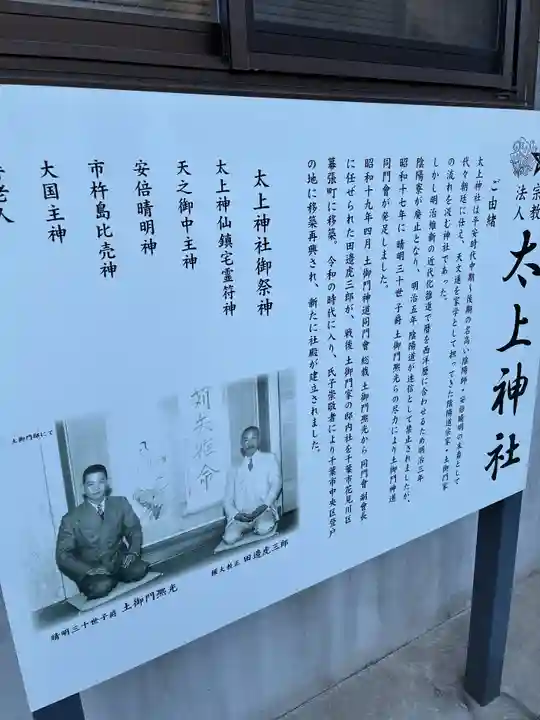 宗教
法人
太上神社
ご由緒
太上神社は平安時代中期～後期の名高い陰陽師・安倍晴明の末裔として
代々朝廷に仕え、天文道を家学として担ってきた陰陽道宗家・土御門家
の流れを汲む神社であった。
しかし明治維新の近代化推進で暦を西洋暦に合わせるため明治三年
陰陽寮が廃止となり、明治五年 陰陽道が迷信として禁止されましたが、
昭和十七年に 晴明三十世子爵 土御門凞光らの尽力により土御門神道
同門會が発足しました。
昭和十九年四月 土御門神道同門會 総裁 土御門凞光から 同門會 副會長
に任ぜられた田邊虎三郎が、戦後 土御門家の邸内社を千葉市花見川区
幕張町に移築。令和の時代に入り、氏子崇敬者により千葉市中央区登戸
の地に移築再興され、新たに社殿が建立されました。
太上神社御祭神
太上神仙鎮宅霊符神
天之御中主神
安倍晴明神
市杵島比売神
大国主神
土御門邸にて
晴明三十世子爵 土御門凞光
権大教正 田邊虎三郎